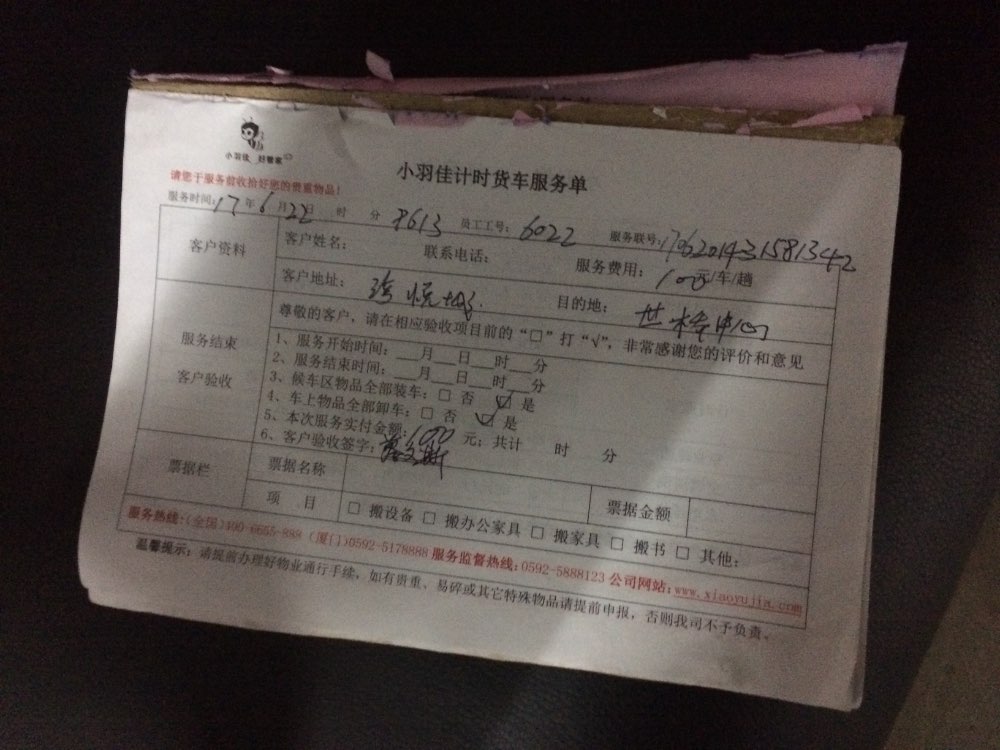 小羽佳 好管家
小羽佳计时货车服务单
请您于服务前收拾好您的贵重物品!
服务时间: 17 年 6 月 22 日 时 分 8613 员工工号: 6022 服务联号:
客户资料 客户姓名: 联系电话: 服务费用: 元/车/趟
客户地址: 目的地:
服务结束 客户验收
尊敬的客户,请在相应验收项目前的“□”打“√”,非常感谢您的评价和意见
1、服务开始时间:___月___日___时___分
2、服务结束时间:___月___日___时___分
3、候车区物品全部装车:□ 否 ☑ 是
4、车上物品全部卸车:□ 否 ☑ 是
5、本次服务实付金额: 元;共计 时 分
6、客户验收签字:
票据栏 票据名称 票据金额
项 目 □ 搬设备 □ 搬办公家具 □ 搬家具 □ 搬书 □ 其他:
服务热线:(全国)400-6655-888 (厦门)0592-5178888 服务监督热线:0592-5888123 公司网站:www.xiaoyujia.com
温馨提示:请提前办理好物业通行手续,如有贵重、易碎或其它特殊物品请提前申报,否则我司不予负责、